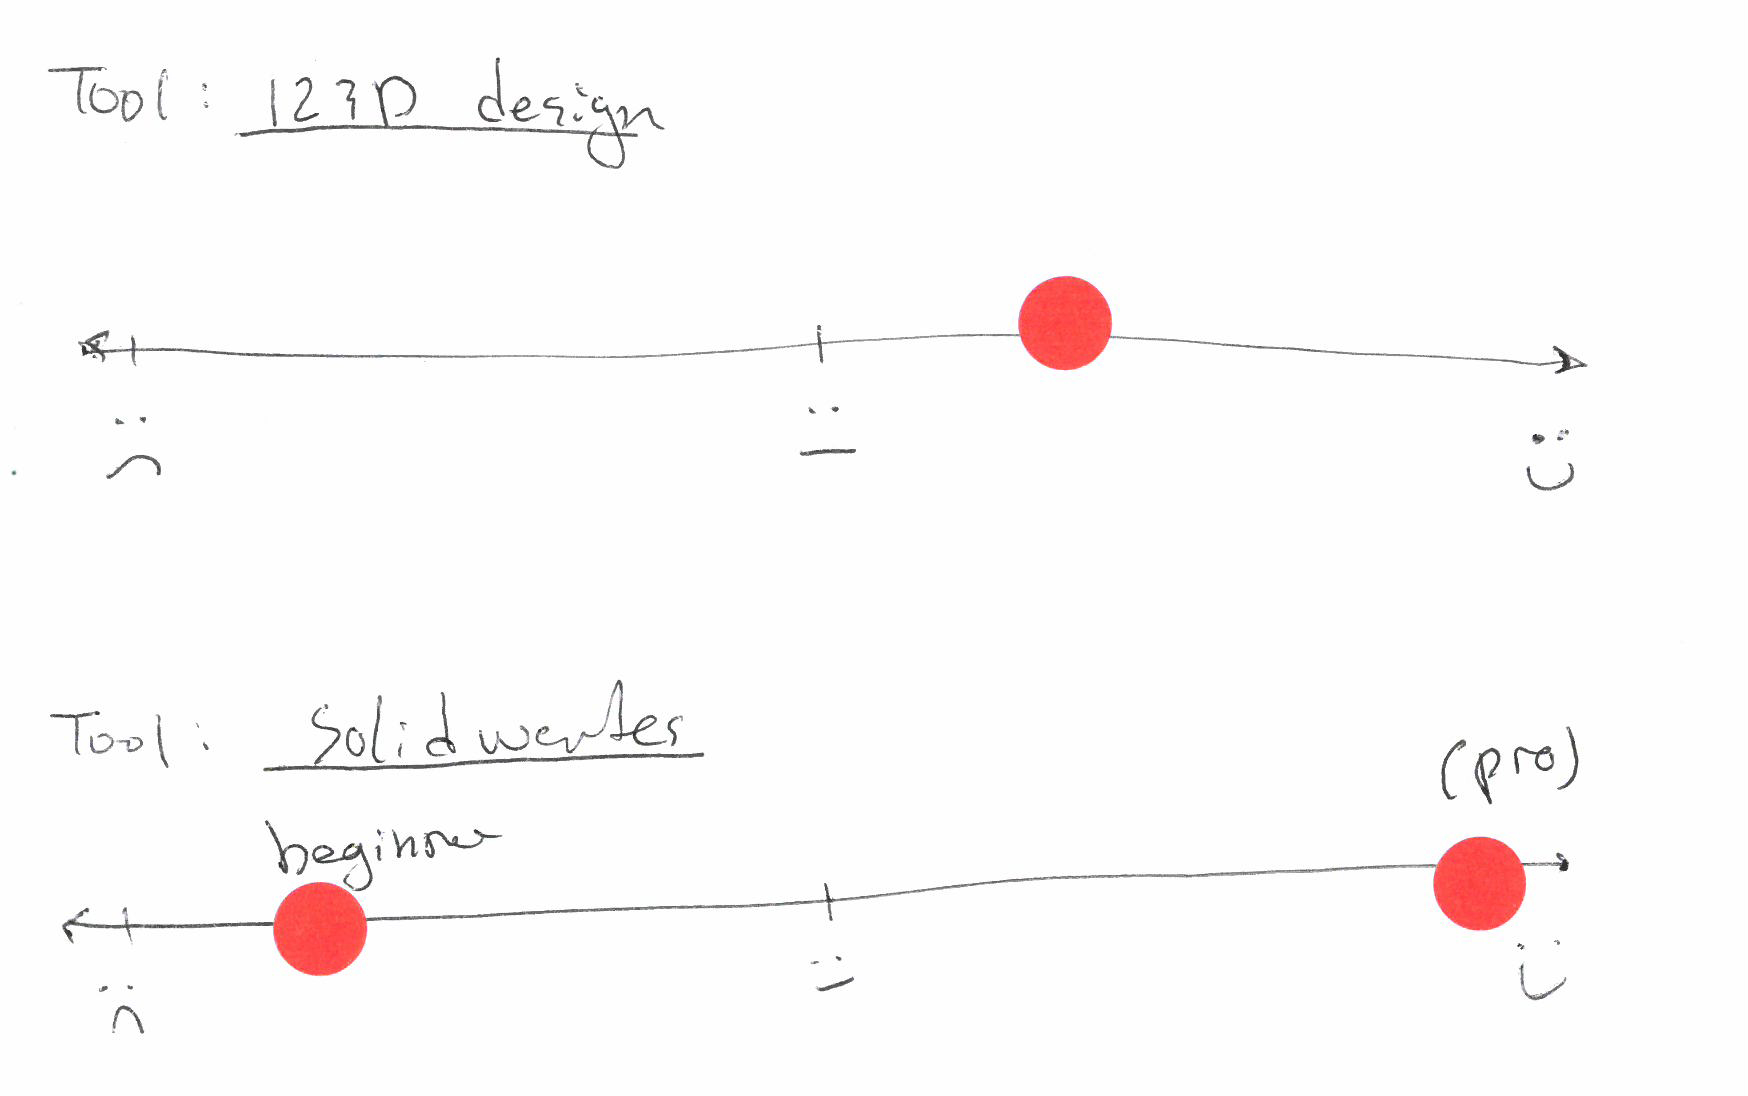 Tool: 123D design
Tool: Solidworkes
beginner
(pro)